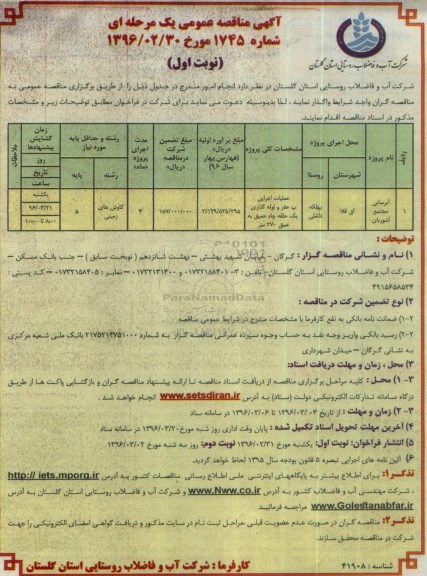 آگهی مناقصه عمومی یک مرحله ای
شماره ۱۷۴۵ مورخ ۱۳۹۶/۰۲/۳۰
(نوبت اول)
شرکت آب و فاضلاب روستایی استان گلستان
شرکت آب و فاضلاب روستایی استان گلستان در نظر دارد انجام امور مندرج در جدول ذیل را از طریق برگزاری مناقصه عمومی به
مناقصه گران واجد شرایط واگذار نماید ، لذا بدینوسیله دعوت می نماید برای شرکت در فراخوان مطابق توضیحات زیر و مشخصات
مذکور در اسناد مناقصه اقدام نمایند.
ردیف
نام پروژه
محل اجرای پروژه
شهرستان
روستا
مشخصات کلی پروژه
مبلغ برآورد اولیه «ریال» (فهارس بهار سال ۹۶)
مبلغ تضمین شرکت در مناقصه «ریال»
مدت اجرای پروژه «ماه»
رشته و حداقل پایه مورد نیاز
رشته
پایه
زمان گشایش پیشنهادها
روز
تاریخ
ساعت
ملاحظات
۱
آبرسانی مجتمع
آق قلا
عملیات اجرایی
حفر و لوله گذاری یک حلقه چاه عمیق به عمق ۲۷۰ متر
۳/۱۲۹/۵۲۵/۲۹۵
۱۵۷/۰۰۰/۰۰۰
۴
کاوش های زمینی
۵
یکشنبه
۹۶/۰۳/۲۱
توضیحات :
۱) نام و نشانی مناقصه گزار : گرگان – خیابان شهید بهشتی – بهشت شانزدهم ( نوبخت سابق ) – جنب بانک مسکن –
شرکت آب و فاضلاب روستایی استان گلستان- تلفن : ۳-۰۱۷۳۲۱۵۸۴۰۱ و ۰۱۷۳۲۱۳۱۴۰۰ – نمابر : ۰۱۷۳۲۱۵۸۴۰۵ – کد پستی :
۴۹۱۵۶۵۸۵۳۴
۲) نوع تضمین شرکت در مناقصه :
۲-۱) ضمانت نامه بانکی به نفع کارفرما با مشخصات مندرج در شرایط عمومی مناقصه
۲-۲) رسید بانکی واریز وجه نقد به حساب وجوه سپرده عمرانی مناقصه گزار به شماره ۲۱۷۵۲۱۴۷۵۱۰۰۰ بانک ملی شعبه مرکزی
به نشانی گرگان – میدان شهرداری
۳) محل ، زمان و مهلت دریافت اسناد:
۳-۱) محل : کلیه مراحل برگزاری مناقصه از دریافت اسناد مناقصه تا ارائه پیشنهاد مناقصه گران و بازگشایی پاکت ها از طریق
درگاه سامانه تدارکات الکترونیکی دولت (ستاد) به آدرس www.setsdiran.ir انجام خواهد شد .
۳-۲) زمان و مهلت : از تاریخ ۱۳۹۶/۰۳/۰۲ تا ۱۳۹۶/۰۳/۰۶ در سامانه ستاد
۴) آخرین مهلت تحویل اسناد تکمیل شده : پایان وقت اداری روز شنبه مورخ ۱۳۹۶/۰۳/۲۰ در سامانه ستاد
۵) انتشار فراخوان: نوبت اول: یکشنبه مورخ ۱۳۹۶/۰۲/۳۱ نوبت دوم: روز سه شنبه مورخ ۱۳۹۶/۰۳/۰۲
۶) آئین نامه های اجرایی تبصره ۵ قانون بودجه سال ۱۳۹۵ لحاظ خواهد گردید.
تذکر۱: برای اطلاع بیشتر به پایگاههای اینترنتی ملی اطلاع رسانی مناقصات کشور به آدرس http:// iets.mporg.ir
، شرکت مهندسی آب و فاضلاب کشور به آدرس www.Nww.co.ir و شرکت آب و فاضلاب روستایی استان گلستان به آدرس
www.Golestanabfar.ir مراجعه فرمائید
تذکر۲: مناقصه گران در صورت عدم عضویت قبلی، مراحل ثبت نام در سایت مذکور و دریافت گواهی امضای الکترونیکی را جهت
شرکت در مناقصه محقق سازند.
کارفرما : شرکت آب و فاضلاب روستایی استان گلستان
شناسه : ۴۱۹۰۸